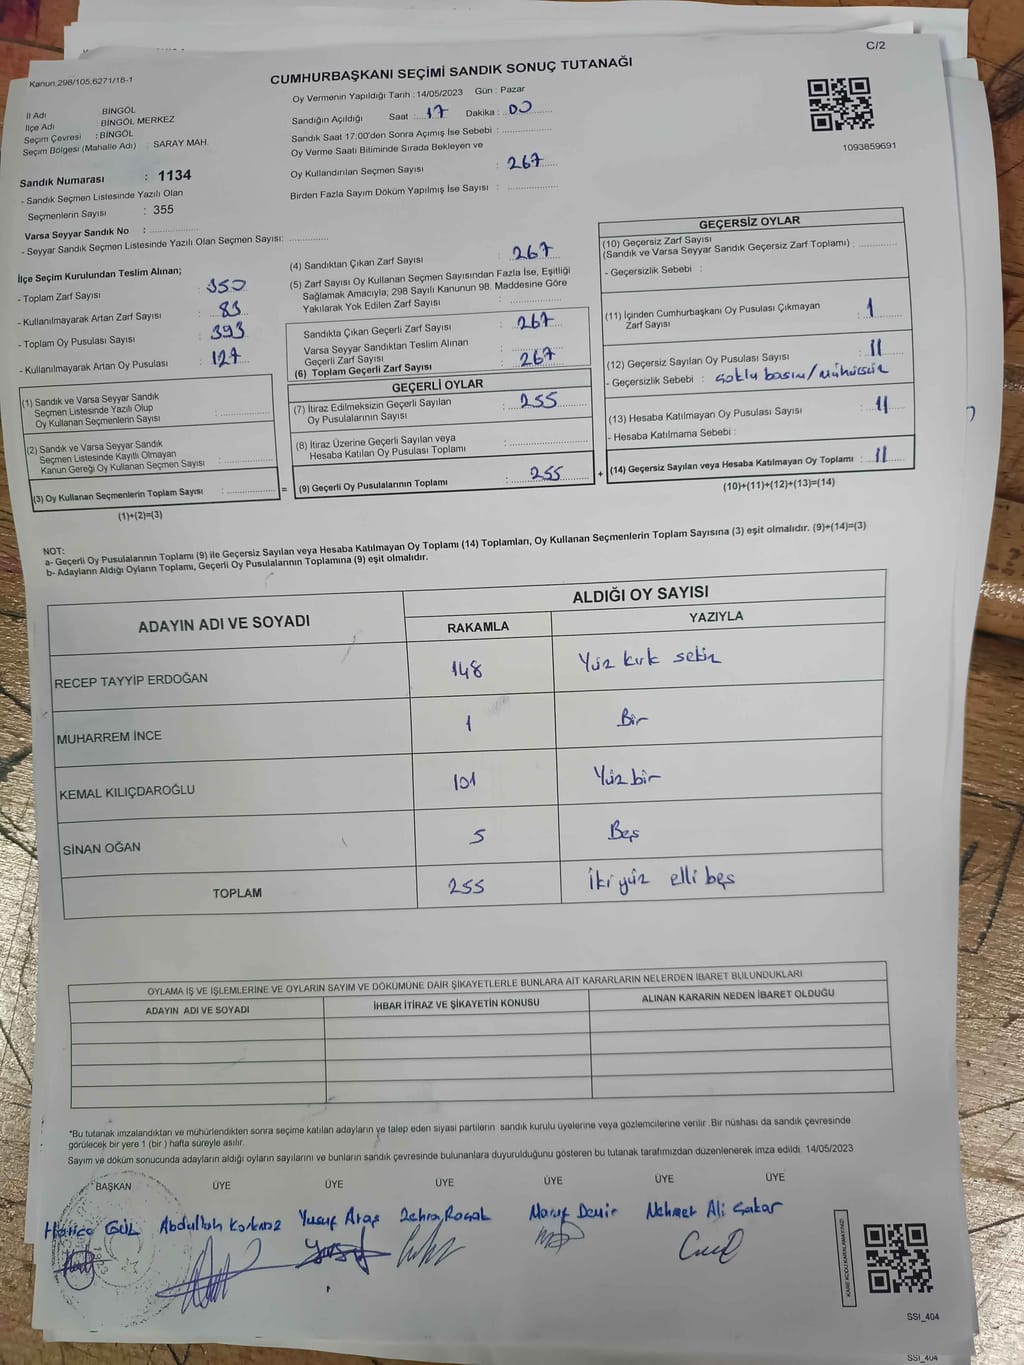 C/2
Kanun;298/105,6271/18-1
CUMHURBAŞKANI SEÇİMİ SANDIK SONUÇ TUTANAĞI
İl Adı BİNGÖL
İlçe Adı : BİNGÖL MERKEZ
Seçim Çevresi : BİNGÖL
Seçim Bölgesi (Mahalle Adı) : SARAY MAH.
Sandık Numarası : 1134
- Sandık Seçmen Listesinde Yazılı Olan
Seçmenlerin Sayısı : 355
Varsa Seyyar Sandık No : ..............
- Seyyar Sandık Seçmen Listesinde Yazılı Olan Seçmen Sayısı: ............
Oy Vermenin Yapıldığı Tarih : 14/05/2023 Gün : Pazar
Sandığın Açıldığı Saat : 17 Dakika : 00
Sandık Saat 17:00'den Sonra Açımış İse Sebebi : ..............
Oy Verme Saati Bitiminde Sırada Bekleyen ve
Oy Kullandırılan Seçmen Sayısı : 267
Birden Fazla Sayım Döküm Yapılmış İse Sayısı : ..............
1093859691
İlçe Seçim Kurulundan Teslim Alınan;
- Toplam Zarf Sayısı : 350
- Kullanılmayarak Artan Zarf Sayısı : 83
- Toplam Oy Pusulası Sayısı : 393
- Kullanılmayarak Artan Oy Pusulası : 127
(1) Sandık ve Varsa Seyyar Sandık
Seçmen Listesinde Yazılı Olup
Oy Kullanan Seçmenlerin Sayısı : ..............
(2) Sandık ve Varsa Seyyar Sandık
Seçmen Listesinde Kayıtlı Olmayan
Kanun Gereği Oy Kullanan Seçmen Sayısı : ..............
(3) Oy Kullanan Seçmenlerin Toplam Sayısı : ..............
(1)+(2)=(3)
=
(4) Sandıktan Çıkan Zarf Sayısı : 267
(5) Zarf Sayısı Oy Kullanan Seçmen Sayısından Fazla İse, Eşitliği
Sağlamak Amacıyla; 298 Sayılı Kanunun 98. Maddesine Göre
Yakılarak Yok Edilen Zarf Sayısı : ..............
Sandıkta Çıkan Geçerli Zarf Sayısı : 267
Varsa Seyyar Sandıktan Teslim Alınan
Geçerli Zarf Sayısı : ..............
(6) Toplam Geçerli Zarf Sayısı : 267
GEÇERLİ OYLAR
(7) İtiraz Edilmeksizin Geçerli Sayılan
Oy Pusulalarının Sayısı : 255
(8) İtiraz Üzerine Geçerli Sayılan veya
Hesaba Katılan Oy Pusulası Toplamı : ..............
(9) Geçerli Oy Pusulalarının Toplamı : 255
+
GEÇERSİZ OYLAR
(10) Geçersiz Zarf Sayısı
(Sandık ve Varsa Seyyar Sandık Geçersiz Zarf Toplamı) : ..............
- Geçersizlik Sebebi :
(11) İçinden Cumhurbaşkanı Oy Pusulası Çıkmayan
Zarf Sayısı : 1
(12) Geçersiz Sayılan Oy Pusulası Sayısı : 11
- Geçersizlik Sebebi : çoklu basım/mühürsüz
(13) Hesaba Katılmayan Oy Pusulası Sayısı : 11
- Hesaba Katılmama Sebebi :
(14) Geçersiz Sayılan veya Hesaba Katılmayan Oy Toplamı : 11
(10)+(11)+(12)+(13)=(14)
NOT:
a- Geçerli Oy Pusulalarının Toplamı (9) ile Geçersiz Sayılan veya Hesaba Katılmayan Oy Toplamı (14) Toplamları, Oy Kullanan Seçmenlerin Toplam Sayısına (3) eşit olmalıdır. (9)+(14)=(3)
b- Adayların Aldığı Oyların Toplamı, Geçerli Oy Pusulalarının Toplamına (9) eşit olmalıdır.
ADAYIN ADI VE SOYADI
ALDIĞI OY SAYISI
RAKAMLA YAZIYLA
RECEP TAYYİP ERDOĞAN 148 Yüz kırk sekiz
MUHARREM İNCE 1 Bir
KEMAL KILIÇDAROĞLU 101 Yüz bir
SİNAN OĞAN 5 Beş
TOPLAM 255 İki yüz elli beş
OYLAMA İŞ VE İŞLEMLERİNE VE OYLARIN SAYIM VE DÖKÜMÜNE DAİR ŞİKAYETLERLE BUNLARA AİT KARARLARIN NELERDEN İBARET BULUNDUKLARI
ADAYIN ADI VE SOYADI İHBAR İTİRAZ VE ŞİKAYETİN KONUSU ALINAN KARARIN NEDEN İBARET OLDUĞU
*Bu tutanak imzalandıktan ve mühürlendikten sonra seçime katılan adayların ve talep eden siyasi partilerin sandık kurulu üyelerine veya gözlemcilerine verilir. Bir nüshası da sandık çevresinde
görülecek bir yere 1 (bir) hafta süreyle asılır.
Sayım ve döküm sonucunda adayların aldığı oyların sayılarını ve bunların sandık çevresinde bulunanlara duyurulduğunu gösteren bu tutanak tarafımızdan düzenlenerek imza edildi. 14/05/2023
BAŞKAN ÜYE ÜYE ÜYE ÜYE ÜYE ÜYE
Hatice GÜL Abdullah Korkmaz Yusuf Araş Zehra Roşak Maruf Demir Mehmet Ali Sakar
KARE KODU KARALAMAYINIZ!
SSI_404
SSI_404